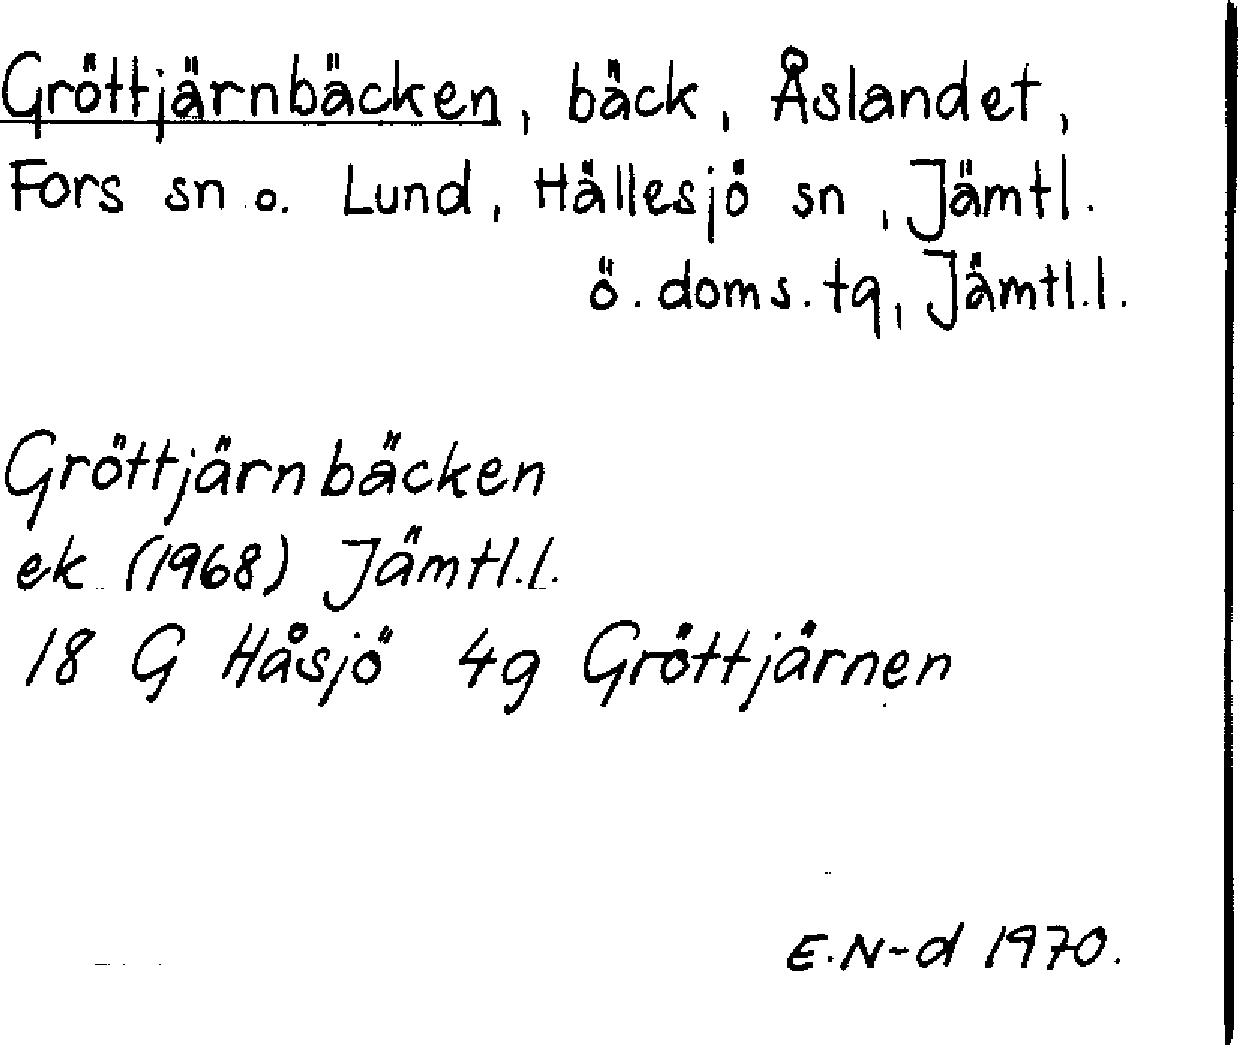 Gröttjärnbäcken, bäck, Åslandet,
Fors sn o. Lund, Hällesjö sn, Jämtl.
ö. doms.tg, Jämtl.l.
Gröttjärnbäcken
ek (1968) Jämtl.l.
18 G Håsjö 4g Gröttjärnen
E.N-d 1970.